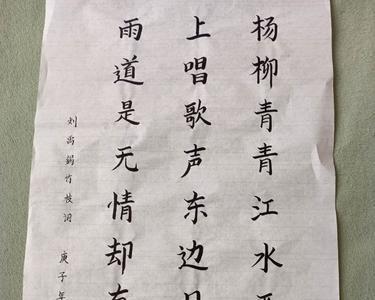 杨柳青青江水平
上唱歌声东边日
雨道是无情却有
刘禹锡竹枝词 庚子年